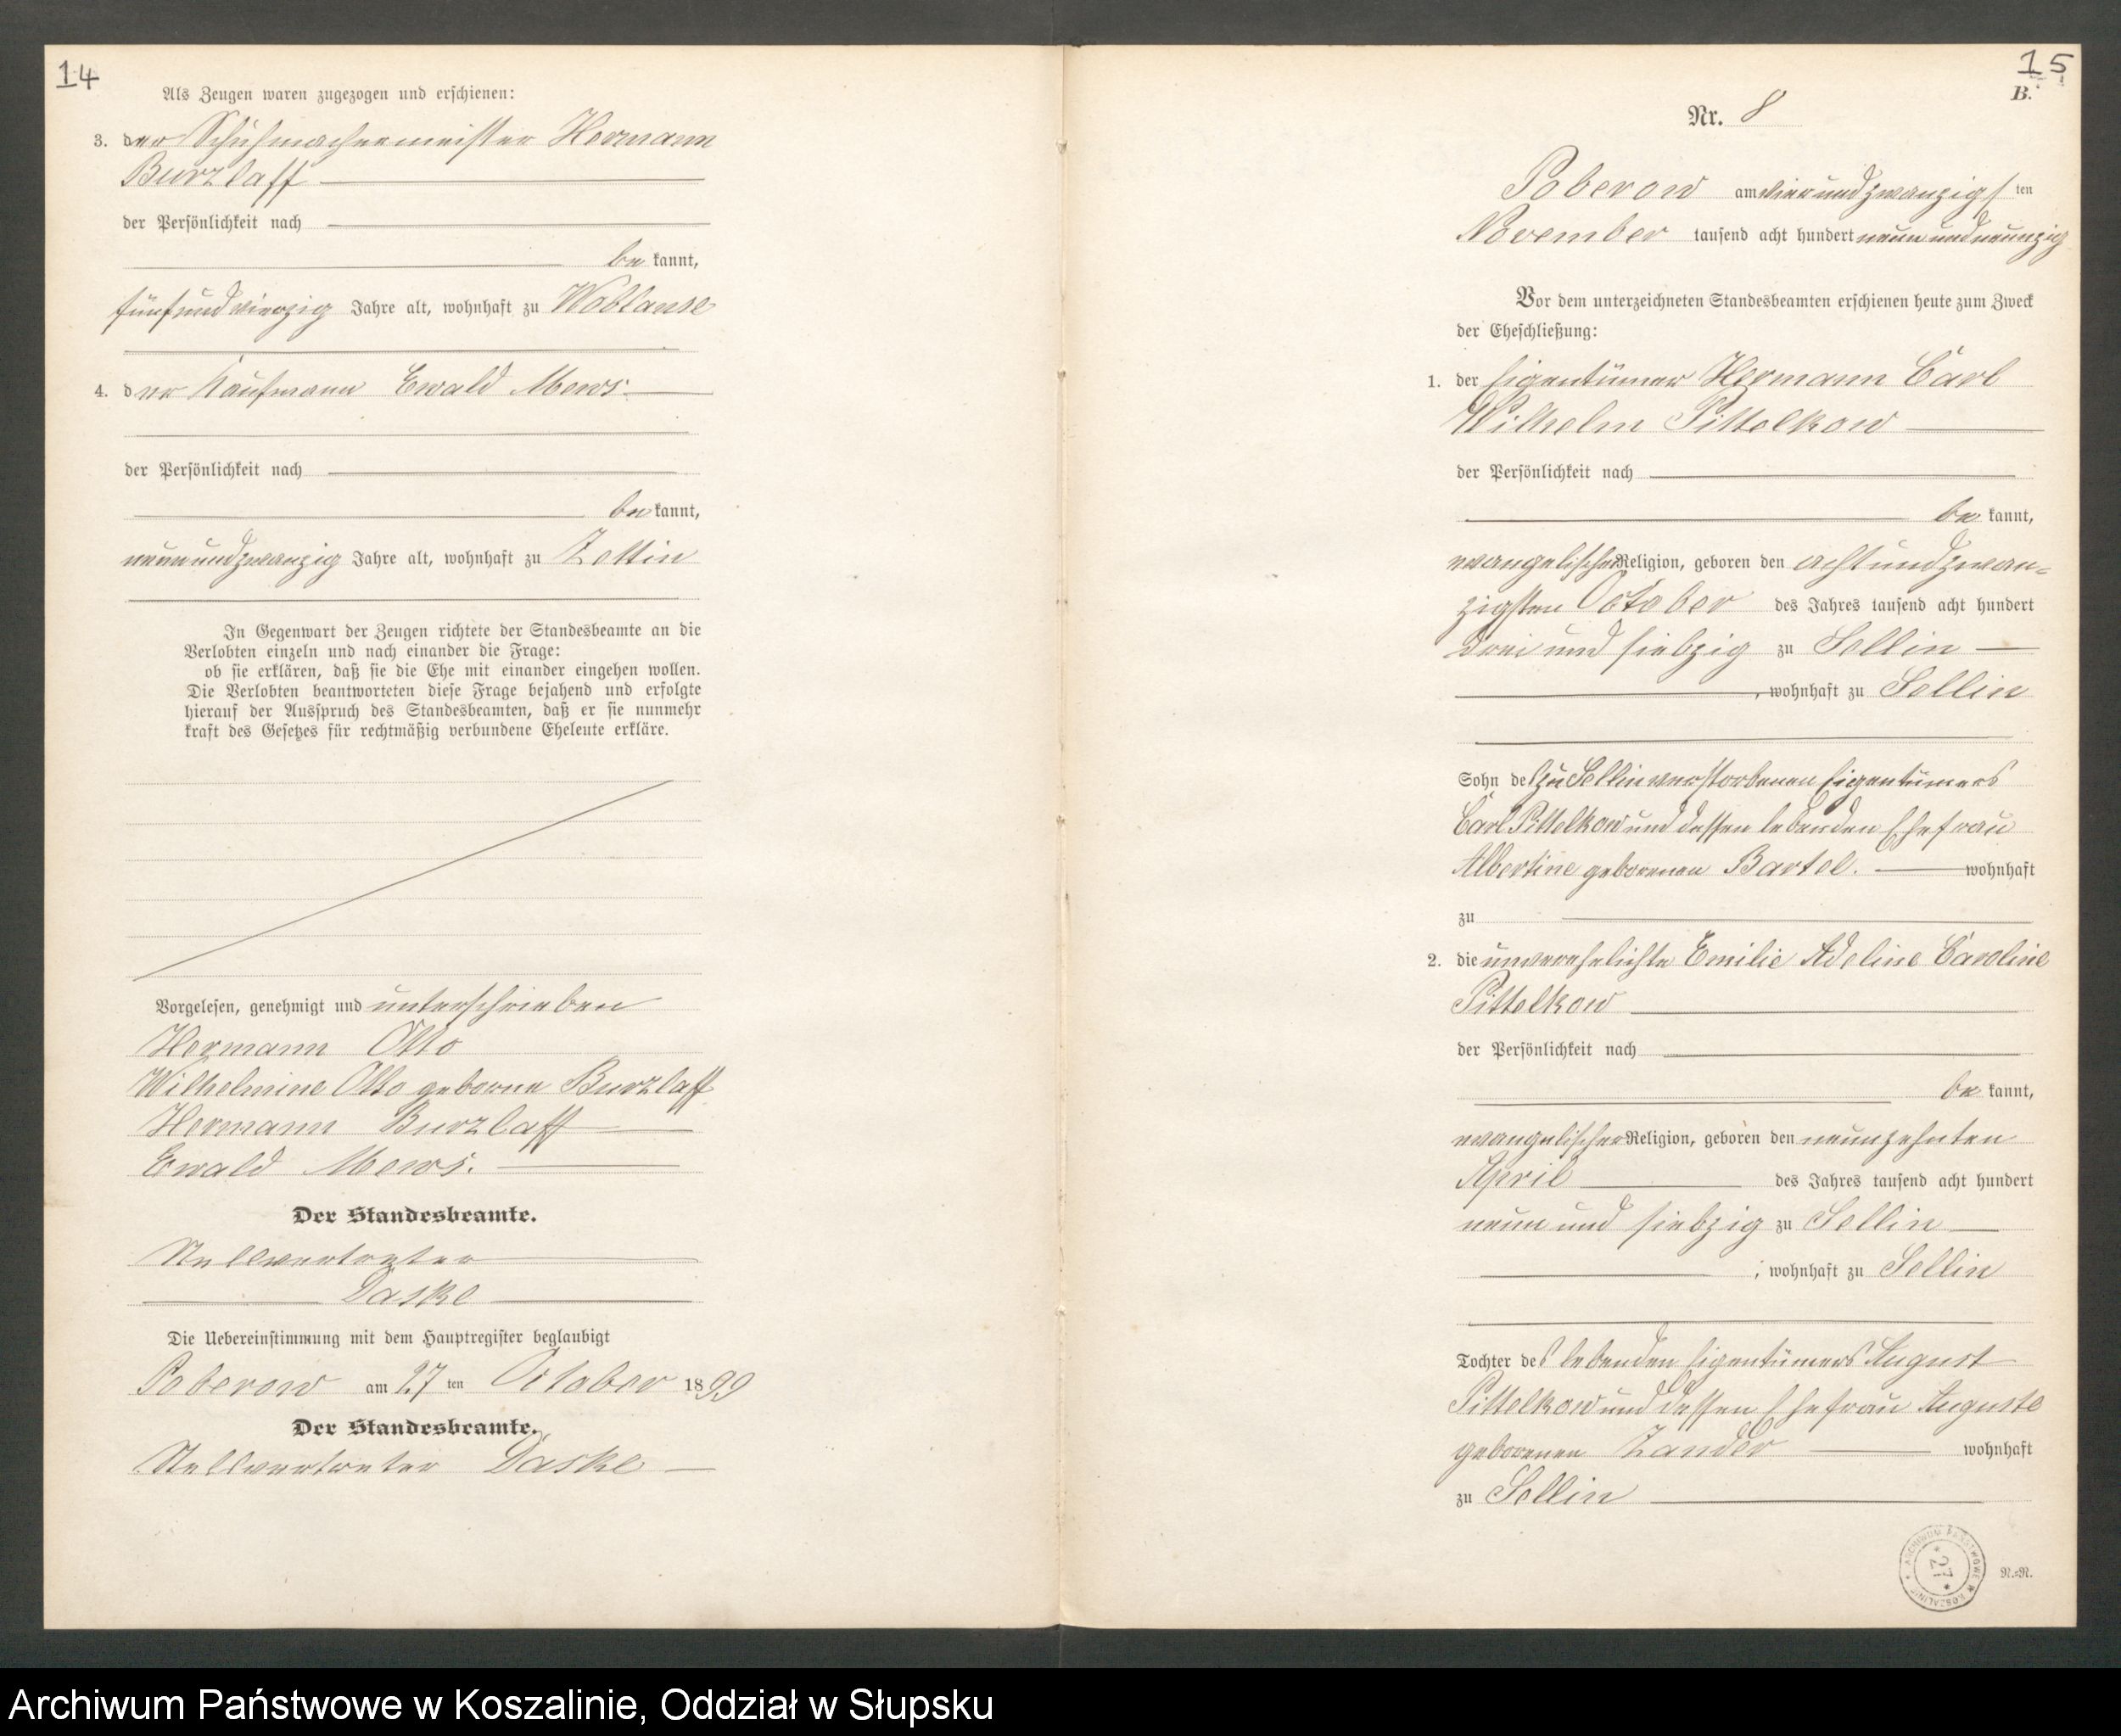 14
Als Zeugen waren zugezogen und erschienen:
3. der Schuhmachermeister Hermann
Burzlaff
der Persönlichkeit nach
be kannt,
fünfundvierzig Jahre alt, wohnhaft zu Woblanse
4. der Kaufmann Ewald Mews.
der Persönlichkeit nach
be kannt,
neunundzwanzig Jahre alt, wohnhaft zu Zettin
In Gegenwart der Zeugen richtete der Standesbeamte an die
Verlobten einzeln und nach einander die Frage:
ob sie erklären, daß sie die Ehe mit einander eingehen wollen.
Die Verlobten beantworteten diese Frage bejahend und erfolgte
hierauf der Ausspruch des Standesbeamten, daß er sie nunmehr
kraft des Gesetzes für rechtmäßig verbundene Eheleute erkläre.
Vorgelesen, genehmigt und unterschrieben
Hermann Otto
Wilhelmine Otto geborne Burzlaff
Hermann Burzlaff
Ewald Mews.
Der Standesbeamte.
Stellvertreter
Daske
Die Uebereinstimmung mit dem Hauptregister beglaubigt
Poberow am 27 ten October 1899
Der Standesbeamte.
Stellvertreter Daske
15
B.
Nr. 8
Poberow am vierundzwanzigsten
November tausend acht hundert neunundneunzig
Vor dem unterzeichneten Standesbeamten erschienen heute zum Zweck
der Eheschließung:
1. der Eigentümer Hermann Carl
Wilhelm Pittelkow
der Persönlichkeit nach
be kannt,
evangelischer Religion, geboren den achtundzwan=
zigsten October des Jahres tausend acht hundert
drei und siebzig zu Sellin
, wohnhaft zu Sellin
Sohn des zu Sellin verstorbenen Eigentümers
Carl Pittelkow und dessen lebenden Ehefrau
Albertine geborenen Bartel. wohnhaft
zu
2. die unverehelichte Emilie Adeline Caroline
Pittelkow
der Persönlichkeit nach
be kannt,
evangelischer Religion, geboren den neunzehnten
April des Jahres tausend acht hundert
neun und siebzig zu Sellin
, wohnhaft zu Sellin
Tochter des lebenden Eigentümers August
Pittelkow und dessen Ehefrau Auguste
geborenen Zander wohnhaft
zu Sellin
ARCHIWUM PAŃSTWOWE W KOSZALINIE
* 27 *
N.=N.
Archiwum Państwowe w Koszalinie, Oddział w Słupsku